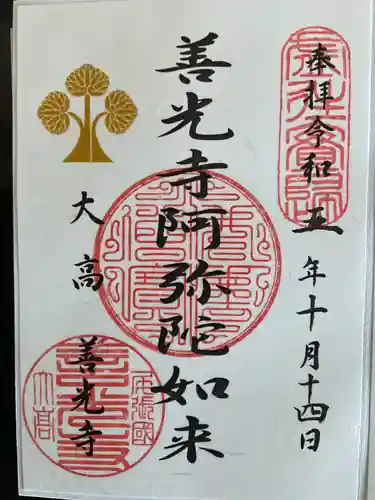 奉拝令和五年十月十四日
善光寺阿弥陀如来
大高
善光寺
尾張国
大高